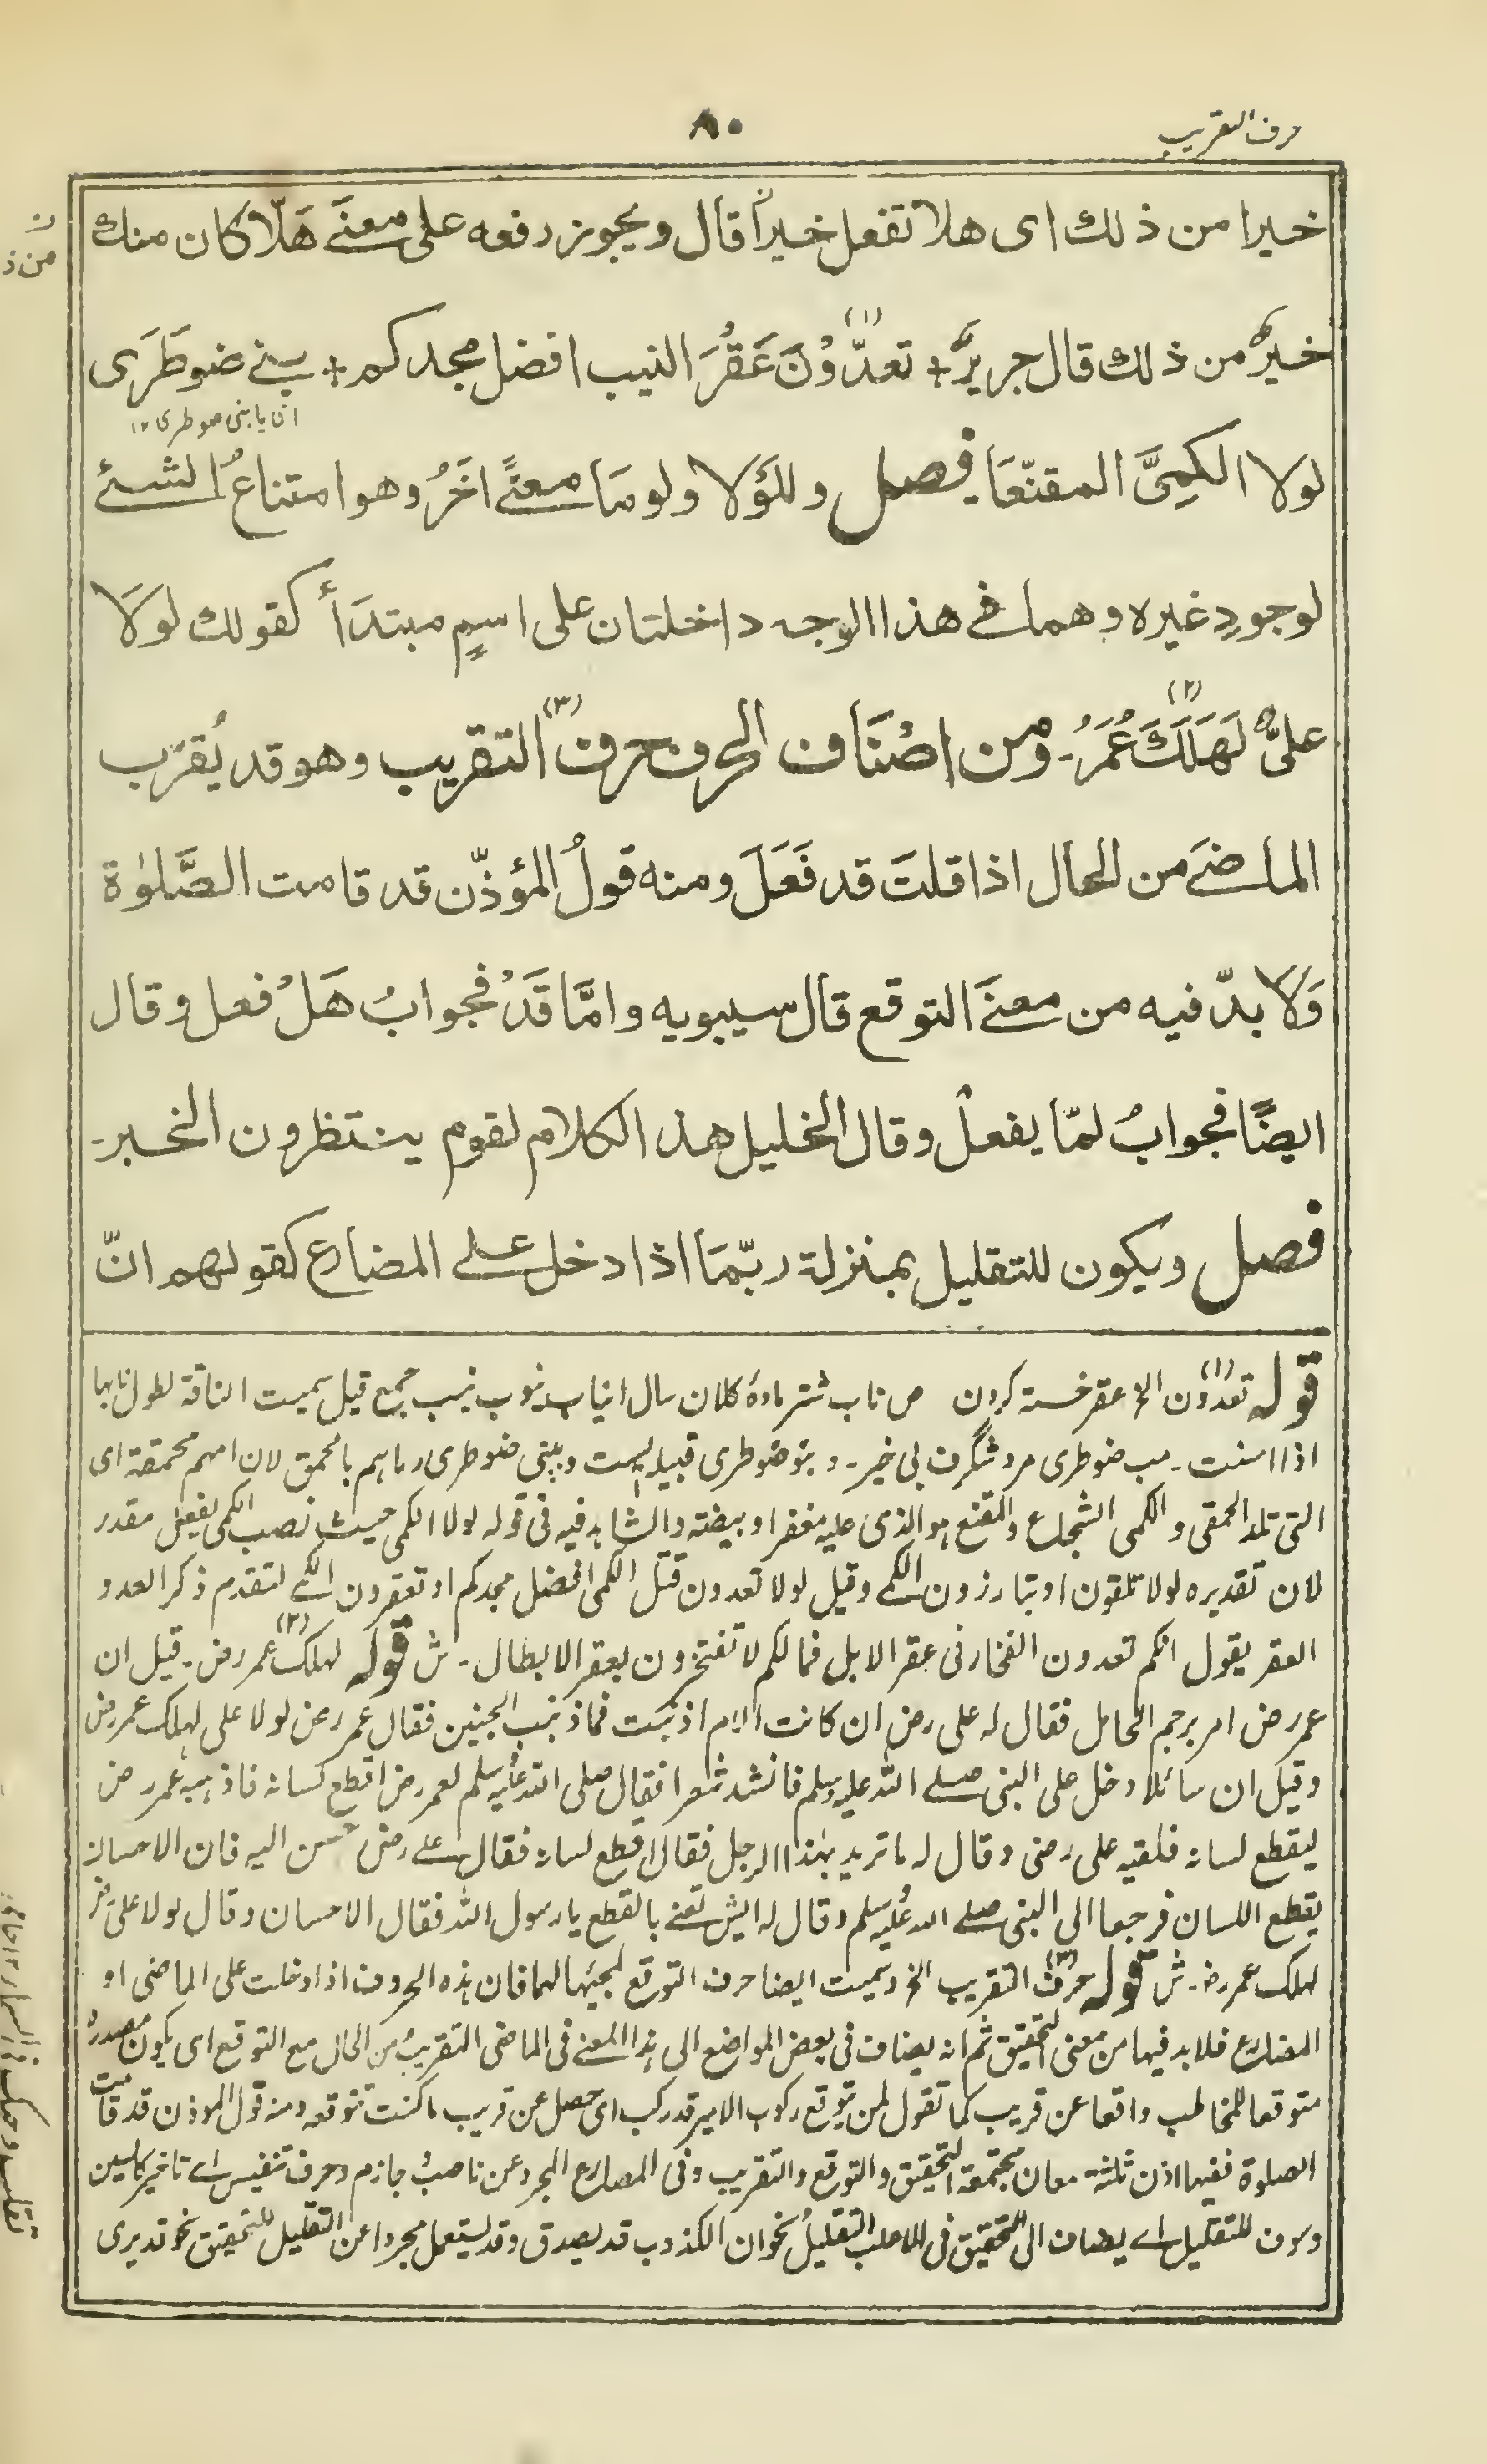 حرف التقريب
٨٠
خيرا من ذلك اى هلا تفعل خيراً قال ويجوز رفعه على معنَے هَلّا كان منك
خيرٌ من ذلك قال جريرٌ + تعدُّوْنَ عَقْرَ النيب افضل مجدكم + بنے ضوطَرَى
اى يا بنى ضوطرى ١٢
لولا الكمِىَّ المقنّعَا۔ فصل وللَوْلا ولومَا معنًے اٰخَرُ وهو امتناعُ الشئ
لوجودِ غيره وهما فے هذا الوجه داخلتان على اسمٍ مبتدَأ كقولك لولَا
علىٌّ لَهَلَكَ عُمَرُ۔ ومن اصْنَاف الحرف حرف التقريب وهو قد يُقرّب
الماضےَ من الحال اذا قلتَ قد فَعَلَ ومنه قولُ المؤذّن قد قامت الصَّلوٰة
وَلَا بدّ فيه من معنَے التوقع قال سيبويه وامَّا قَدْ فجوابُ هَلْ فعل وقال
ايضًا فجوابُ لمّا يفعلْ وقال الخليل هذا الكلام لقوم ينتظرون الخبر۔
فصل ويكون للتقليل بمنزلة ربّمَا اذا دخل علے المضارع كقولهم انّ
قوله تعدون الخ عقر خسته كردن ص ناب شتر مادهٔ كلان سال انياب نيوب نيب جمع قيل سميت الناقة لطول نابها
اذا اسنت۔ مب ضوطرى مرد شگرف بى خير۔ و بنو ضوطرى قبيله ايست وببنى ضوطرى رماهم بالحمق لان امهم محمقة اى
التى تلد الحمقى والكمى الشجاع والمقنع هو الذى عليه مغفر او بيضته والشاهد فيه فى قوله لولا الكمى حيث نصب الكمى بفعل مقدر
لان تقديره لولا تلقون او تبارزون الكمے وقيل لولا تعدون قتل الكمى افضل مجدكم او تعقرون الكمے لتقدم ذكر العد و
العقر يقول انكم تعدون الفخار فى عقر الابل فمالكم لا تفتخرون بعقر الابطال۔ ش قوله لهلك عمر رض۔ قيل ان
عمر رض امر برجم الحامل فقال له على رض ان كانت الام اذنبت فماذنب الجنين فقال عمر رض لولا على لهلك عمر رض
وقيل ان سائلا دخل على النبى صلے الله عليه وسلم فانشد شعرا فقال صلى الله عليه وسلم لعمر رض اقطع لسانه فاذهبه عمر رض
ليقطع لسانه فلقيه على رضى وقال له ما تريد بهذا الرجل فقال اقطع لسانه فقال علے رض احسن اليه فان الاحسان
يقطع اللسان فرجعا الى النبى صلے الله عليه وسلم وقال له ايش تعنے بالقطع يا رسول الله فقال الاحسان وقال لولا على رض
لهلك عمر رض۔ ش قوله حرف التقريب الخ وسميت ايضا حرف التوقع لمجيئها لهما فان هذه الحروف اذا دخلت على الماضى او
المضارع فلابد فيها من معنى التحقيق ثم انه يضاف فى بعض المواضع الى هذا المعنے فى الماضى التقريب من الحال مع التوقع اى يكون مصدره
متوقعا للمخاطب واقعا عن قريب كما تقول لمن يتوقع ركوب الامير قد ركب اى حصل عن قريب ما كنت تتوقعه ومنه قول الموذن قد قامت
الصلوة ففيها اذن ثلثة معان مجتمعة التحقيق والتوقع والتقريب وفى المضارع المجرد عن ناصب وجازم وحرف تنفيس اے تاخير كالسين
وسوف للتقليل اے يضاف الى التحقيق فى الاغلب التقليل نحو ان الكذوب قد يصدق وقد يستعمل مجردا عن التقليل للتحقيق نحو قد يرى